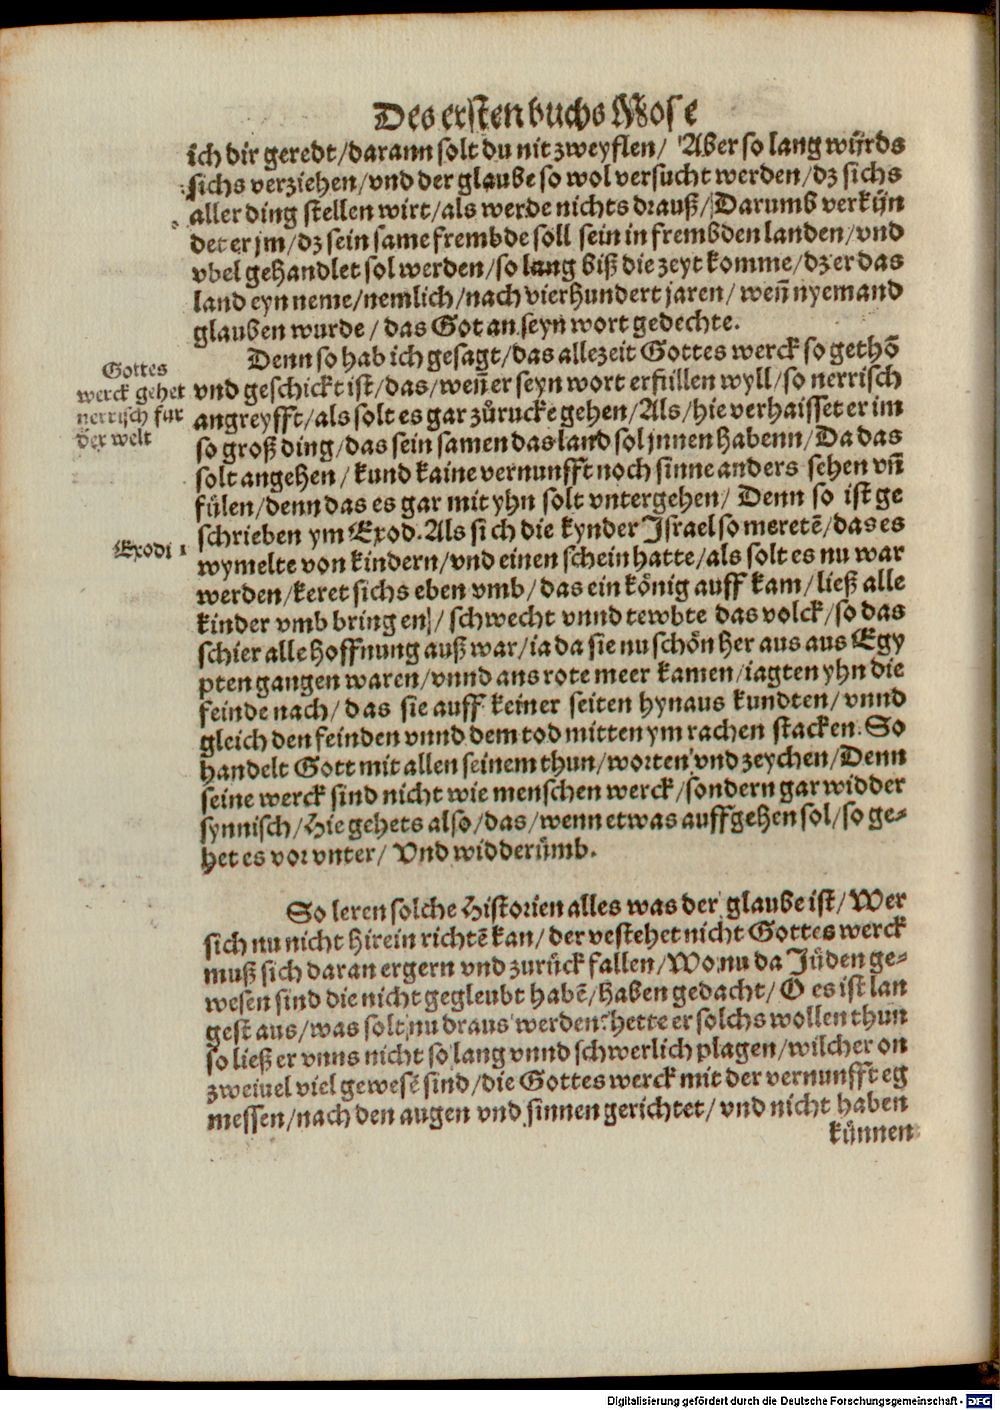 Des ersten buchs Mose
ich dir geredt/darann solt du nit zweyflen/ Aber so lang wüͤrds
sichs verziehen/vnd der glaube so wol versucht werden/dz sichs
aller ding stellen wirt/als werde nichts drauß/Darumb verkün
det er jm/dz sein same frembde soll sein in frembden landen/vnd
vbel gehandlet sol werden/so lang biß die zeyt komme/dz er das
land eyn neme/nemlich/nach vierhundert jaren/ weñ nyemand
glauben wurde/das Got an seyn wort gedechte.
Denn so hab ich gesagt/das allezeit Gottes werck so gethō
Gottes
werck gehet
nerrisch fur
der welt
vnd geschickt ist/das/weñ er seyn wort erfüllen wyll/so nerrisch
angreyfft/als solt es gar zůrucke gehen/Als/hie verhaisset er im
so groß ding/das sein samen das land sol jnnen habenn/Da das
solt angehen/kund kaine vernunfft noch sinne anders sehen vñ
fülen/denn das es gar mit yhn solt vntergehen/ Denn so ist ge
schrieben ym Exod. Als sich die kynder Israel so meretē/das es
Exodi 1
wymelte von kindern/vnd einen schein hatte/als solt es nu war
werden/keret sichs eben vmb/das ein könig auff kam/ließ alle
kinder vmb bringen/schwecht vnnd tewbte das volck/so das
schier alle hoffnung auß war/ia da sie nu schön her aus aus Egy
pten gangen waren/vnnd ans rote meer kamen/iagten yhn die
feinde nach/das sie auff keiner seiten hynaus kundten/vnnd
gleich den feinden vnnd dem tod mitten ym rachen stacken. So
handelt Gott mit allen seinem thun/worten vnd zeychen/Denn
seine werck sind nicht wie menschen werck/sondern gar widder
synnisch/Hie gehets also/das/wenn etwas auffgehen sol/so ge-
het es vor vnter/ Vnd widderümb.
So leren solche Historien alles was der glaube ist/Wer
sich nu nicht hirein richtē kan/der vestehet nicht Gottes werck
muß sich daran ergern vnd zurück fallen/Wo nu da Jüden ge-
wesen sind die nicht gegleubt habē/haben gedacht/O es ist lan
gest aus/was solt nu draus werden? hette er solchs wollen thun
so ließ er vnns nicht so lang vnnd schwerlich plagen/wilcher on
zweiuel viel gewesē sind/die Gottes werck mit der vernunfft eg
messen/nach den augen vnd sinnen gerichtet/vnd nicht haben
künnen
Digitalisierung gefördert durch die Deutsche Forschungsgemeinschaft - DFG